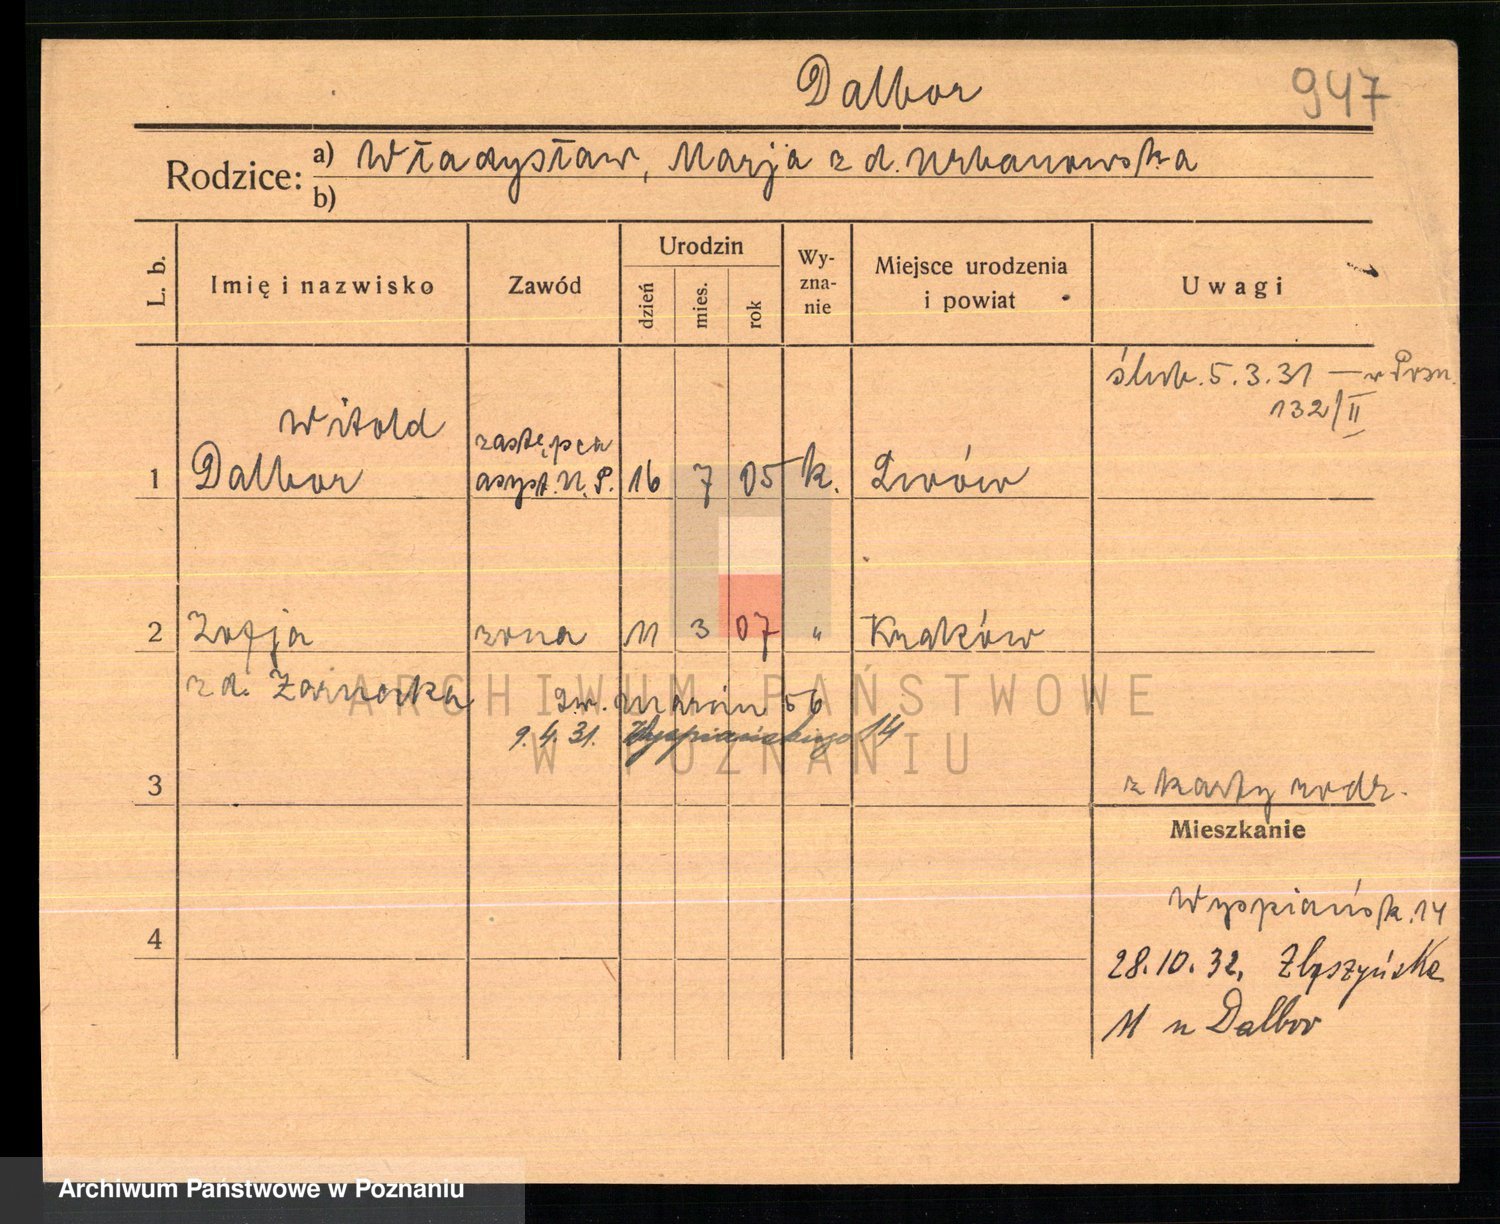 Dalbor
947
Rodzice:
a) Władysław, Marja z d. Urbanowska
b)
L. b.
Imię i nazwisko
Zawód
Urodzin
dzień
mies.
rok
Wy-
zna-
nie
Miejsce urodzenia
i powiat
Uwagi
ślub. 5.3.31 — w Pozn.
132/II
Witold
zastępca
1 Dalbor asyst. N. P. 16 7 05 k. Lwów
2 Zofja żona 11 3 07 " Kraków
z d.
św. Marcin 56
9.4.31. Wyspiańskiego 14
3
z karty rodz.
Mieszkanie
4
Wyspiańsk. 14
28.10.32, Zbąszyńska
11 u Dalbor
ARCHIWUM PAŃSTWOWE
W POZNANIU
Archiwum Państwowe w Poznaniu